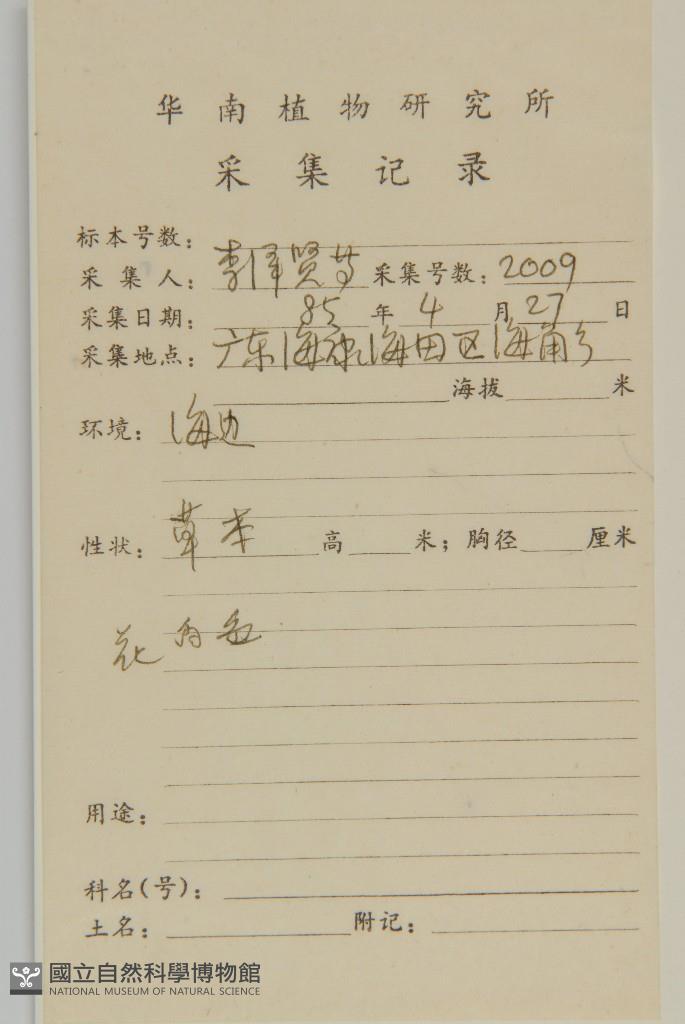 华南植物研究所
采集记录
标本号数：
采集人：李泽贤等 采集号数：2009
采集日期：85年4月27日
采集地点：广东海康海田区海角乡
海拔 米
环境：海边
性状：草本 高 米；胸径 厘米
花白色
用途：
科名(号)：
土名： 附记：
國立自然科學博物館
NATIONAL MUSEUM OF NATURAL SCIENCE